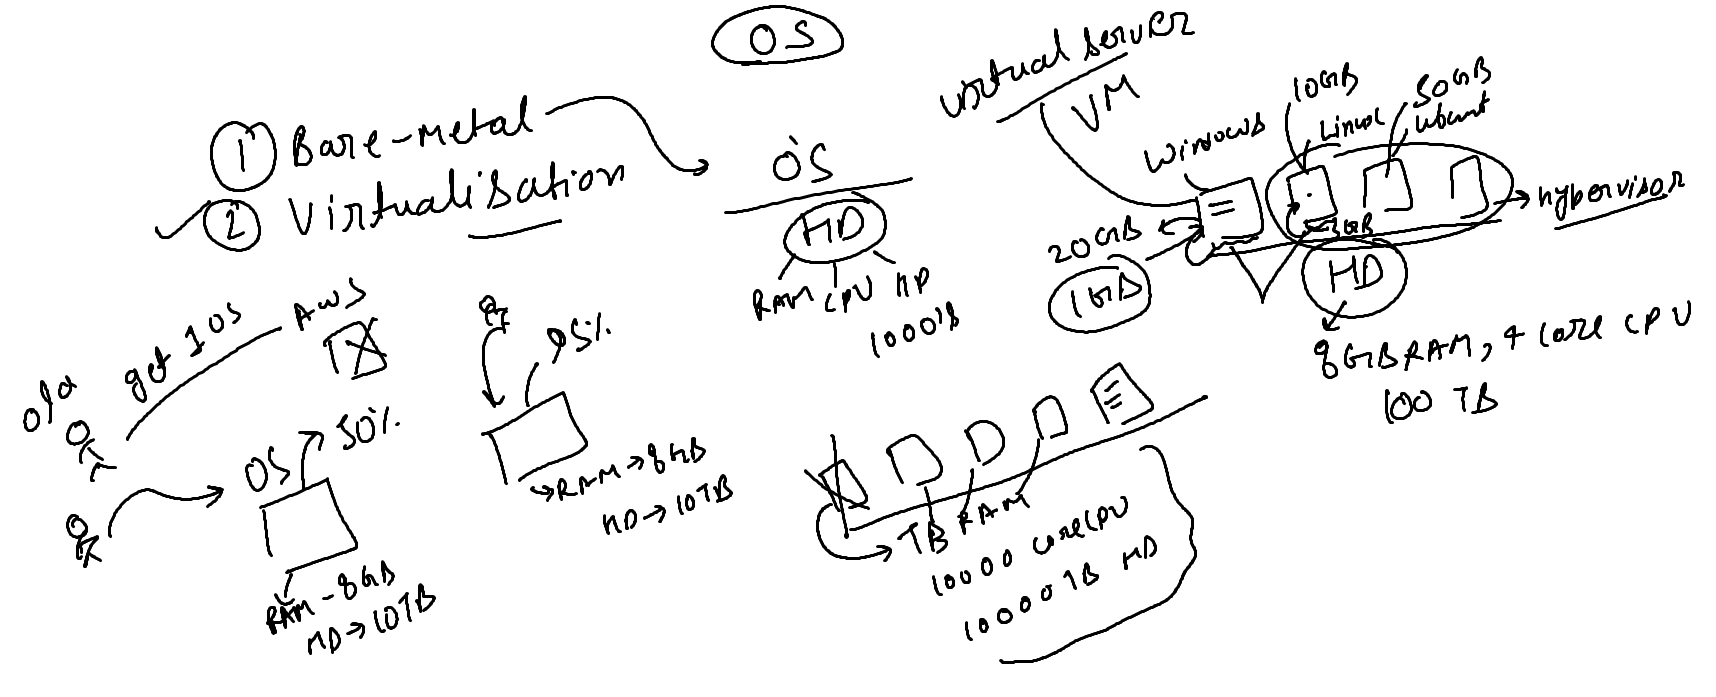 OS
1 Bare-metal
2 Virtualisation
OS
HD
RAM CPU HD
1000's
virtual server
VM
Windows
10GB
Linux
50GB
ubunt
hypervisor
20GB
1GB
3GB
HD
8GB RAM, 4 core CPU
100 TB
ola
get 1 OS
AWS
OS
50%
RAM - 8GB
HD → 10TB
95%
RAM → 8GB
HD → 10TB
TB RAM
10000 core CPU
10000 TB HD